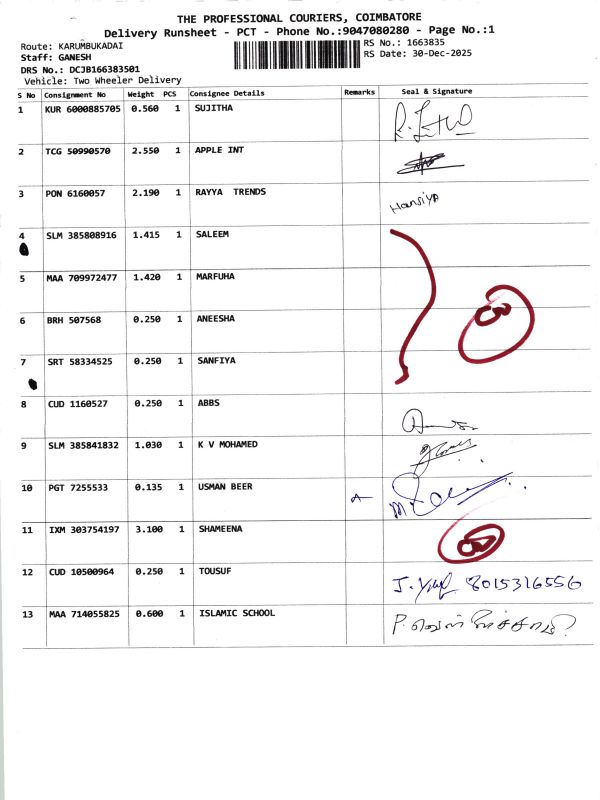 THE PROFESSIONAL COURIERS, COIMBATORE
Delivery Runsheet - PCT - Phone No.:9047080280 - Page No.:1
Route: KARUMBUKADAI RS No.: 1663835
Staff: GANESH RS Date: 30-Dec-2025
DRS No.: DCJB166383501
Vehicle: Two Wheeler Delivery
S No Consignment No Weight PCS Consignee Details Remarks Seal & Signature
1 KUR 6000885705 0.560 1 SUJITHA
2 TCG 50990570 2.550 1 APPLE INT
3 PON 6160057 2.190 1 RAYYA TRENDS Hansiya
4 SLM 385808916 1.415 1 SALEEM
5 MAA 709972477 1.420 1 MARFUHA
6 BRH 507568 0.250 1 ANEESHA
7 SRT 58334525 0.250 1 SANFIYA
8 CUD 1160527 0.250 1 ABBS
9 SLM 385841832 1.030 1 K V MOHAMED
10 PGT 7255533 0.135 1 USMAN BEER
11 IXM 303754197 3.100 1 SHAMEENA
12 CUD 10500964 0.250 1 TOUSUF 8015316556
13 MAA 714055825 0.600 1 ISLAMIC SCHOOL